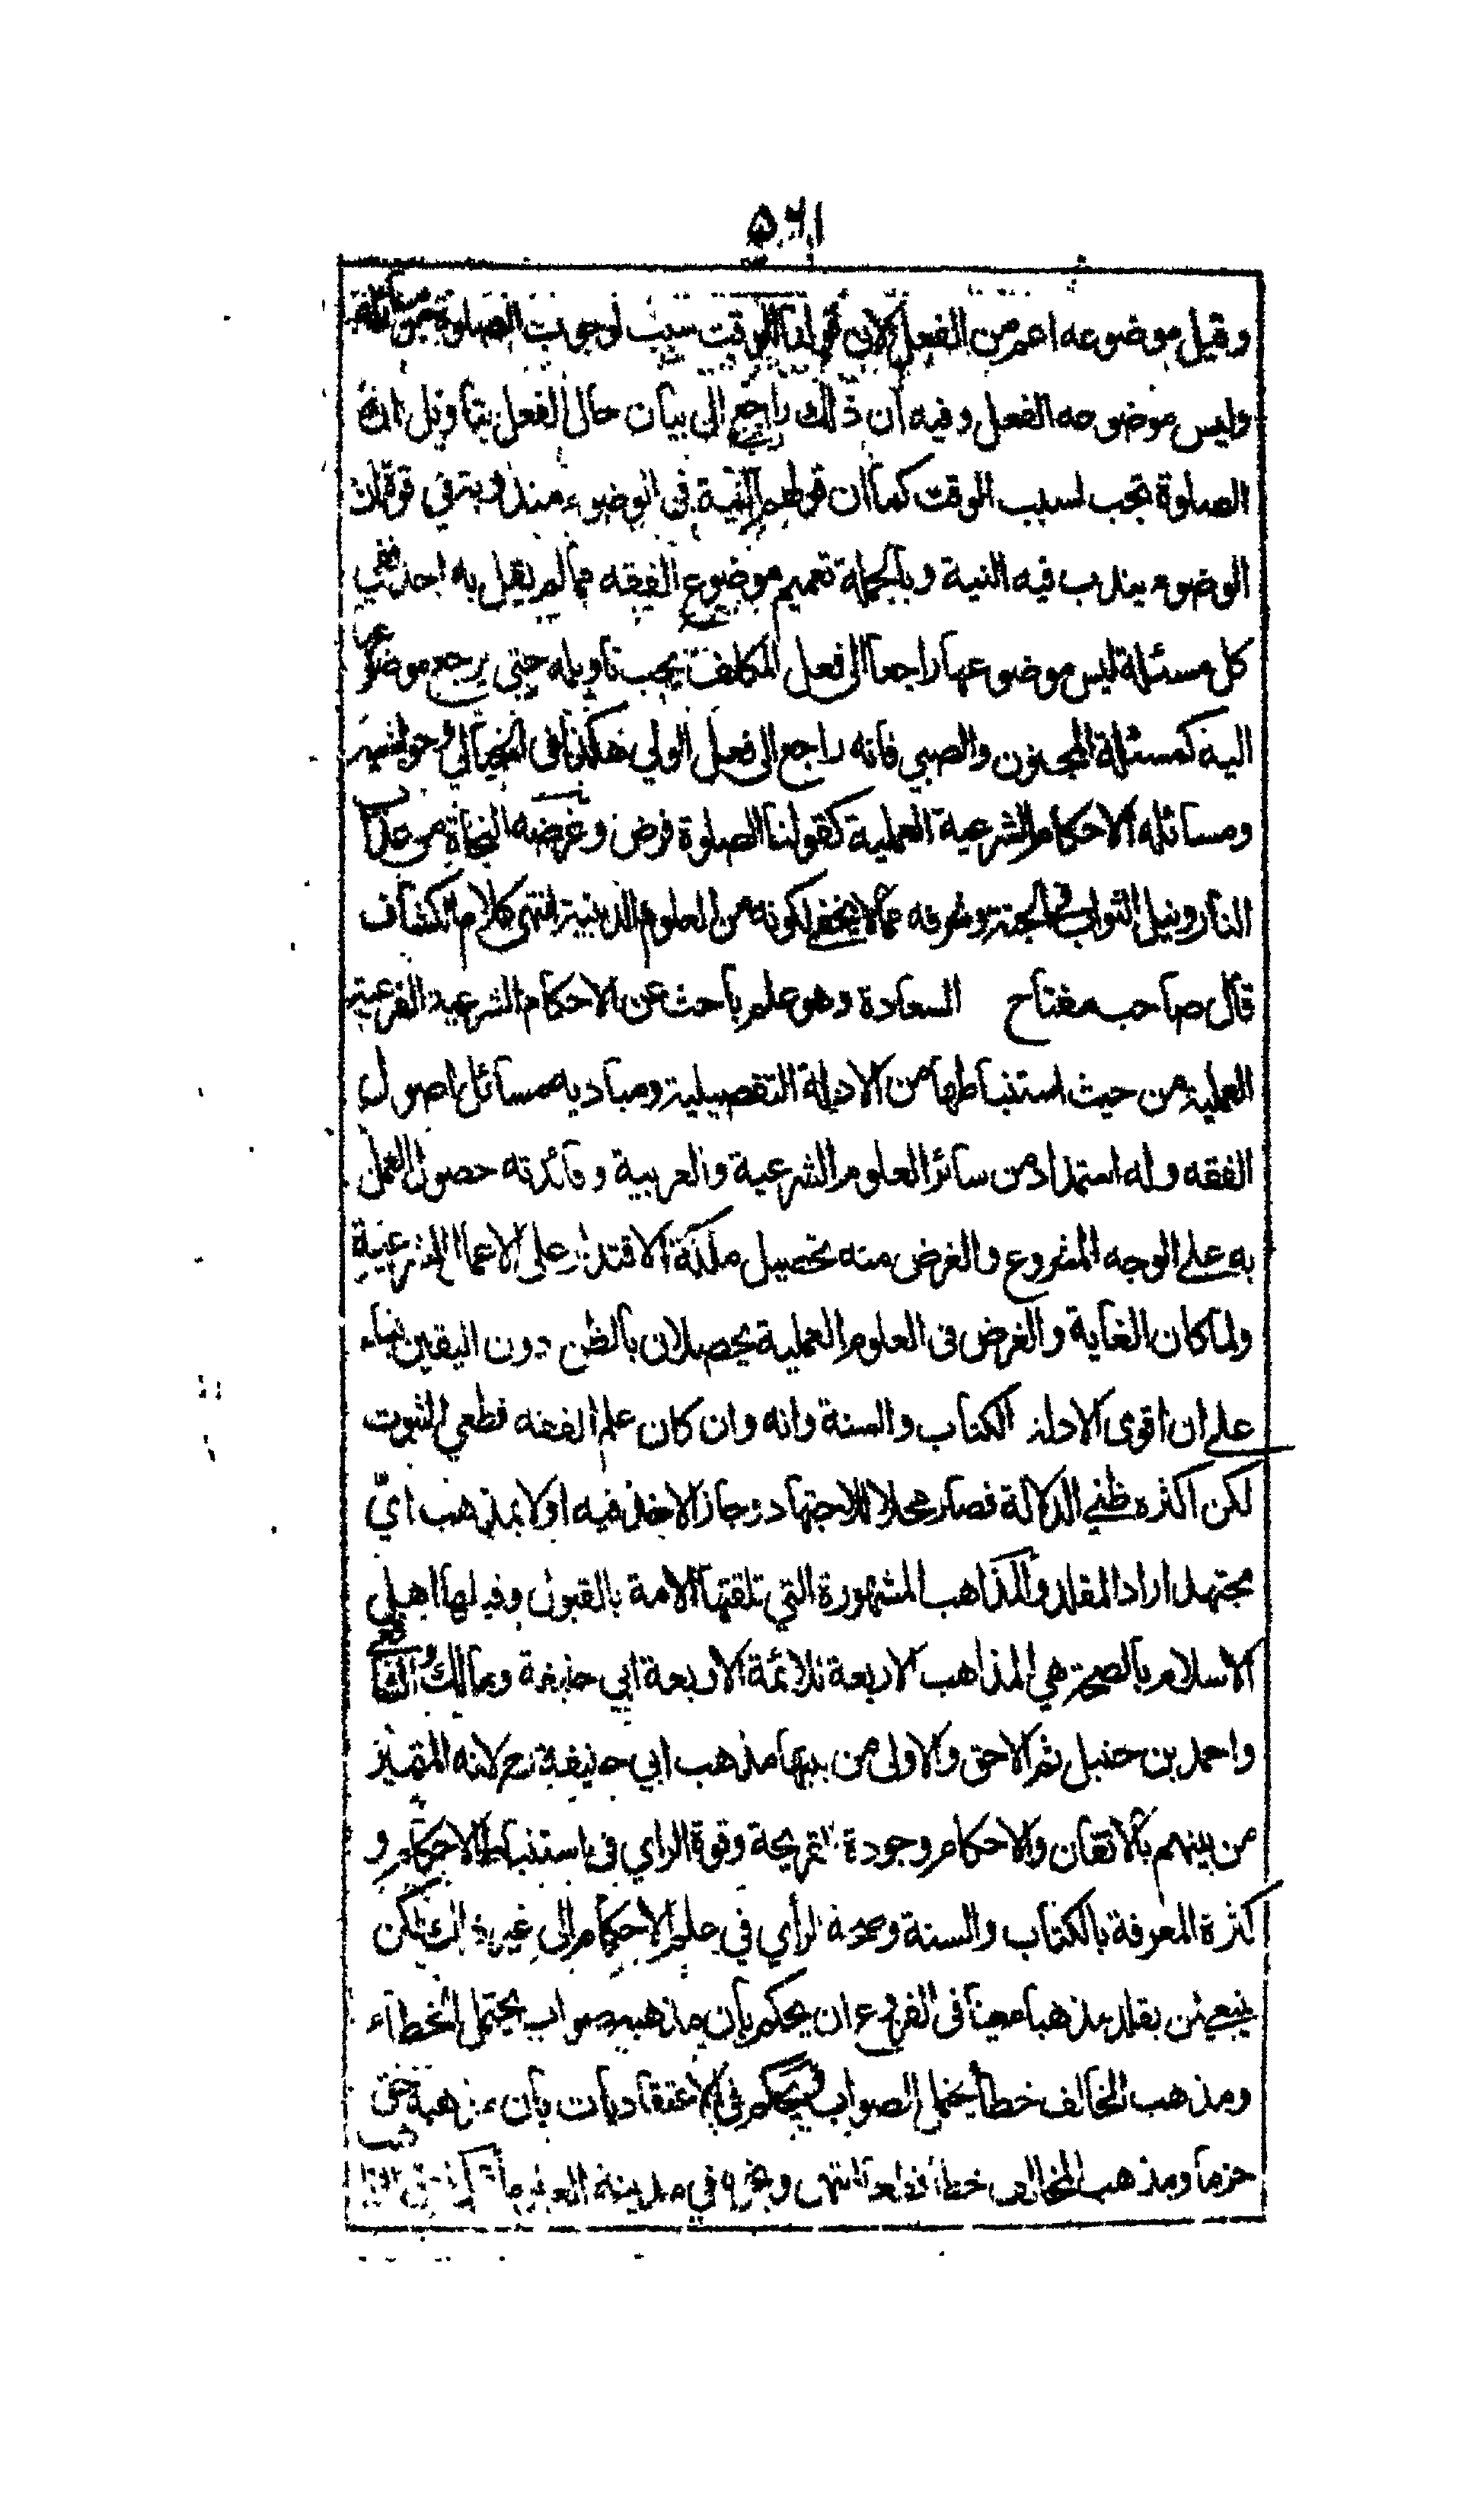 ٥٦١
وقيل موضوعه اعم من الفعل لان قولنا الوقت سبب لوجوب الصلوة من مسائله
وليس موضوعه الفعل وفيه ان ذلك راجع الى بيان حال الفعل بتاويل ان
الصلوة تجب لسبب الوقت كما ان قولهم النية في الوضوء مندوبة في قوة ان
الوضوء يندب فيه النية وبالجملة تعميم موضوع الفقه مما لم يقل به احد ففي
كل مسئلة ليس موضوعها راجعا الى فعل المكلف يجب تاويله حتى يرجع موضوعها
اليه كمسئلة المجنون والصبي فانه راجع الى فعل الولي هكذا في الخيالي وحواشيه
ومسائله الاحكام الشرعية العملية كقولنا الصلوة فرض وغرضه النجاة من عذاب
النار ونيل الثواب في الجنة وشرفه مما لا يخفى لكونه من العلوم الدينية انتهى كلام الكشاف
قال صاحب مفتاح السعادة وهو علم باحث عن الاحكام الشرعية الفرعية
العملية من حيث استنباطها من الادلة التفصيلية ومباديه مسائل اصول
الفقه وله استمداد من سائر العلوم الشرعية والعربية وفائدته حصول العمل
به على الوجه المشروع والغرض منه تحصيل ملكة الاقتدار على الاعمال الشرعية
ولما كان الغاية والغرض في العلوم العملية يحصلان بالظن دون اليقين بناء
على ان اقوى الادلة الكتاب والسنة وانه وان كان علم الفقه قطعي الثبوت
لكن اكثره ظني الدلالة فصار محلا للاجتهاد وجاز الاخذ فيه اولا بمذهب ايّ
مجتهد اراد المقلد والمذاهب المشهورة التي تلقتها الامة بالقبول وقبلها اهل
الاسلام بالصحة هي المذاهب الاربعة للائمة الاربعة ابي حنيفة ومالك والشافعي
واحمد بن حنبل ثم الاحق والاولى من بينها مذهب ابي حنيفة رح لانه المتميز
من بينهم بالاتقان والاحكام وجودة القريحة وقوة الراي في استنباط الاحكام و
كثرة المعرفة بالكتاب والسنة وصحة الرأي في علم الاحكام الى غير ذلك لكن
ينبغي لمن يقلد مذهبا معينا في الفروع ان يحكم بان مذهبه صواب يحتمل الخطاء
ومذهب المخالف خطأ يحتمل الصواب ويحكم في الاعتقاديات بان مذهبه حق
جزما ومذهب المخالف خطأ قطعا انتهى ونحوه في مدينة العلوم